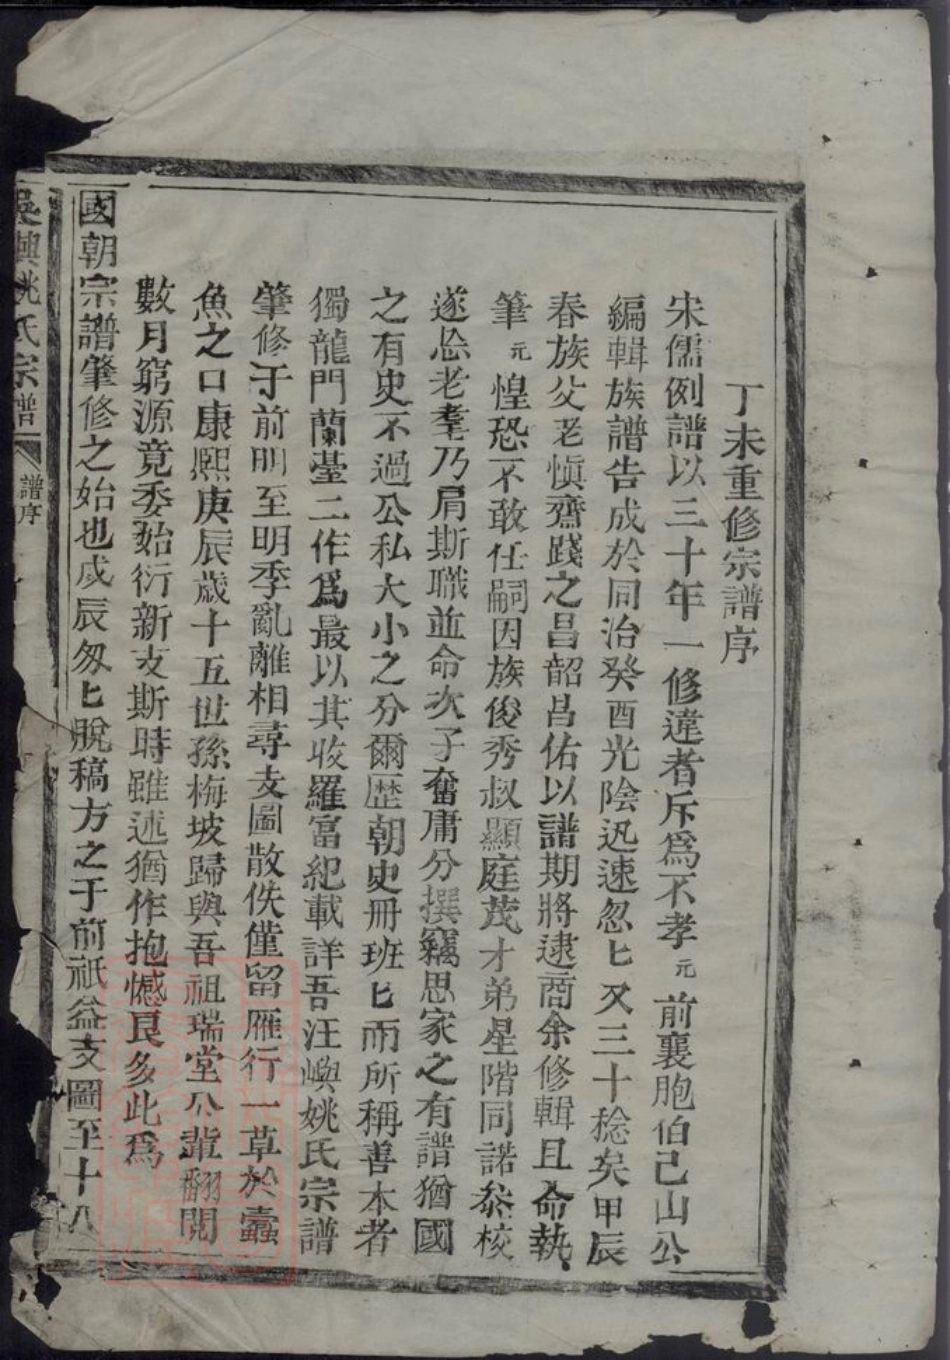 丁未重修宗譜序
宋儒例譜以三十年一修違者斥爲不孝元前襄胞伯己山公
編輯族譜告成於同治癸酉光陰迅速忽匕又三十稔矣甲辰
春族父老愼齋踐之昌韶昌佑以譜期將逮商余修輯且命執
筆元惶恐不敢任嗣因族俊秀叔顯庭茂才弟星階同諾叅校
遂忘老耄乃肩斯職並命次子奮庸分撰竊思家之有譜猶國
之有史不過公私大小之分爾歷朝史册班匕而所稱善本者
獨龍門蘭臺二作爲最以其收羅富紀載詳吾汪嶼姚氏宗譜
肇修于前明至明季亂離相尋支圖散佚僅留雁行一草於蠹
魚之口康熙庚辰歲十五世孫梅坡歸與吾祖瑞堂公輩翻閱
數月窮源竟委始衍新支斯時雖述猶作抱憾良多此爲
國朝宗譜肇修之始也戍辰匆匕脫稿方之于前祇益支圖至十八
吳興姚氏宗譜
譜序